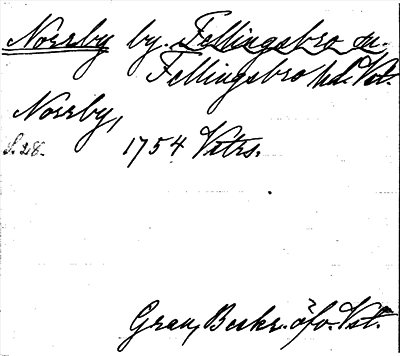 Norrby by. Fellingsbro sn.
Fellingsbro hd. Vst.
Norrby,
S. 28. 1754 Vstrs.
Grau, Beskr. öfv. Vst.